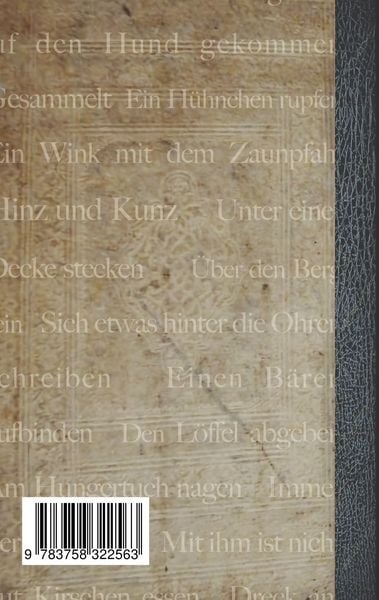 uf den Hund gekommen
Gesammelt Ein Hühnchen rupfen
Ein Wink mit dem Zaunpfah
Hinz und Kunz Unter eine
Decke stecken Über den Berg
ein Sich etwas hinter die Ohren
schreiben Einen Bären
aufbinden Den Löffel abgeben
Am Hungertuch nagen Imme
er Mit ihm ist nich
ut Kirschen essen Dreck an
9 783758 322563